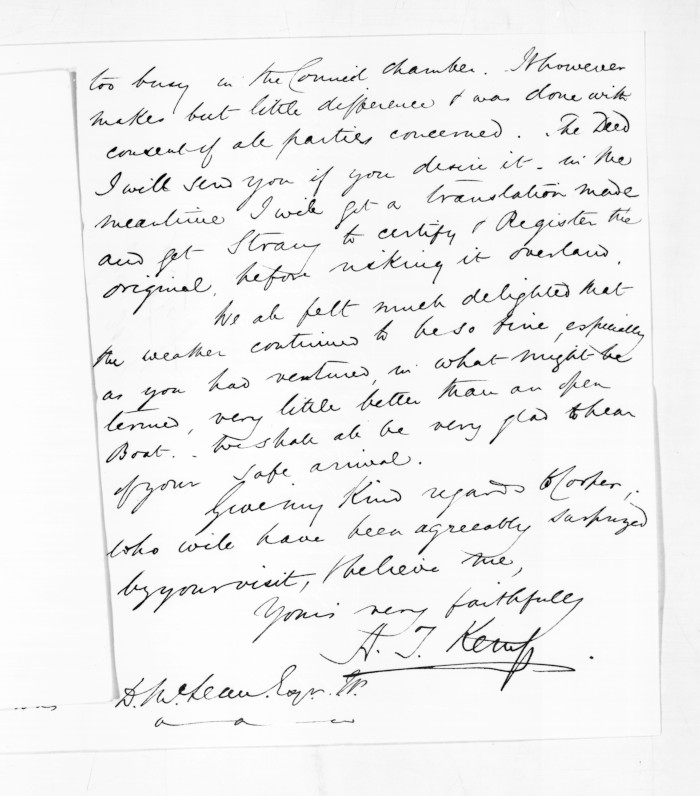 too busy in the Council chamber. It however
makes but little difference & was done with
consent of all parties concerned. The Deed
I will send you if you desire it - in the
meantime I will get a translation made
and get Strang to certify & Register the
original, before risking it overland.
We all felt much delighted that
the weather continued to be so fine, especially
as you had ventured, in what might be
termed, very little better than an open
Boat. - We shall all be very glad to hear
of your safe arrival.
Give my Kind regards to Cooper,
who will have been agreeably surprized
by your visit, & believe me,
Yours very faithfully
A. T. Kemp.
D. McLean. Esqr.